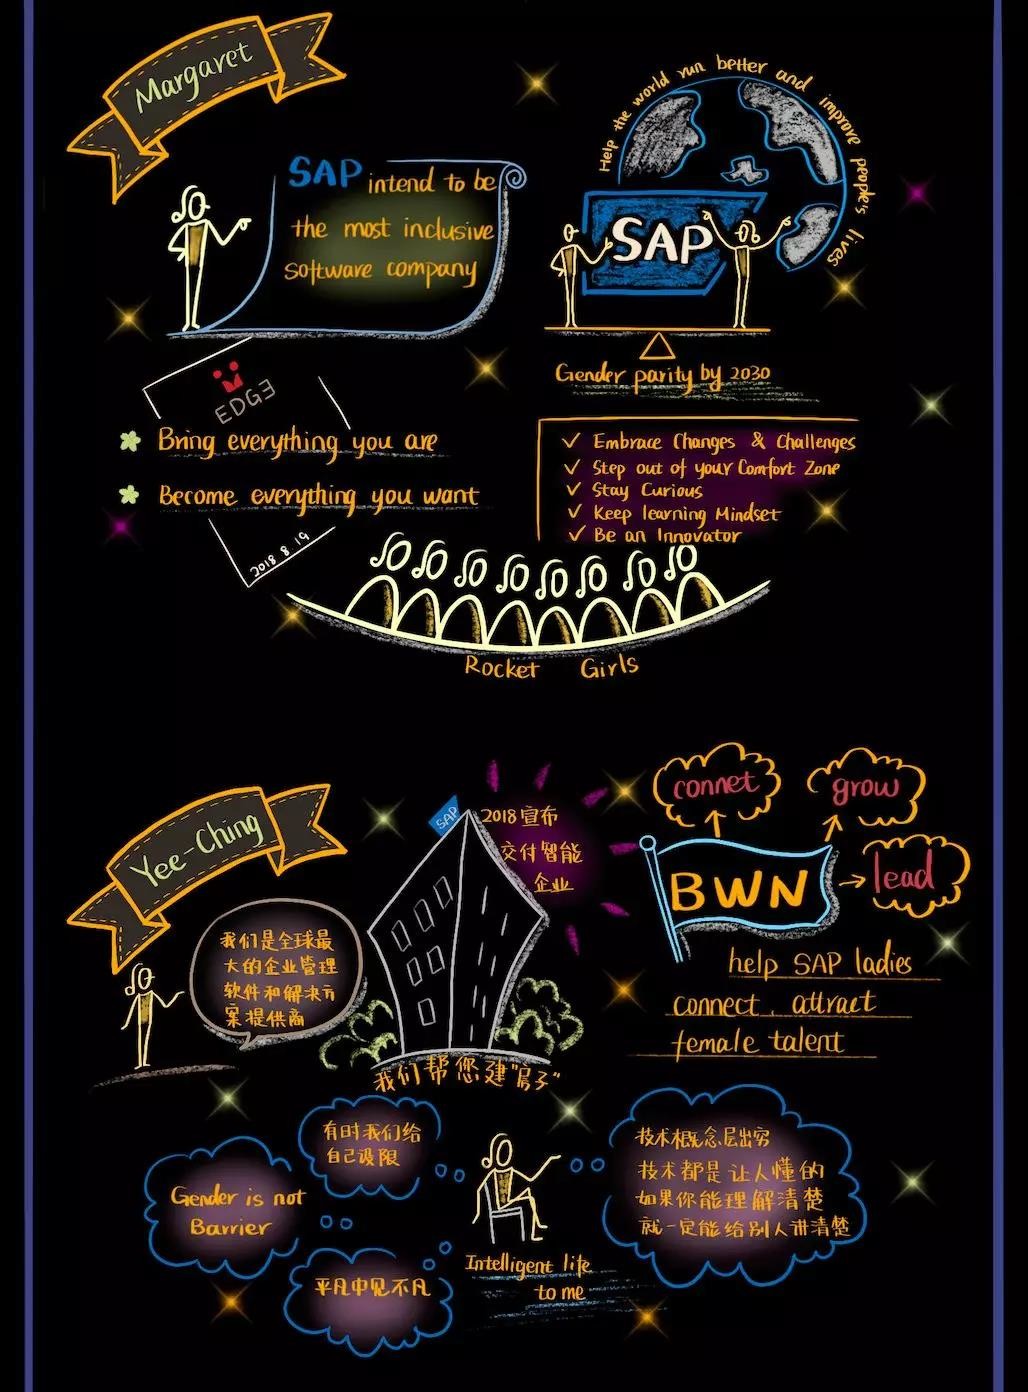 Margaret
SAP intend to be
the most inclusive
software company
Help the world run better and improve people's lives
SAP
Gender parity by 2030
EDGE
Bring everything you are
Become everything you want
2018 8.19
Embrace Changes & Challenges
Step out of your Comfort Zone
Stay Curious
Keep learning Mindset
Be an Innovator
Rocket Girls
Yee-Ching
我们是全球最
大的企业管理
软件和解决方
案提供商
SAP
2018宣布
交付智能
企业
我们帮您建"房子"
connet
grow
lead
BWN
help SAP ladies
connect, attract
female talent
有时我们给
自己设限
Gender is not
Barrier
平凡中见不凡
Intelligent life
to me
技术概念层出穷
技术都是让人懂的
如果你能理解清楚
就一定能给别人讲清楚